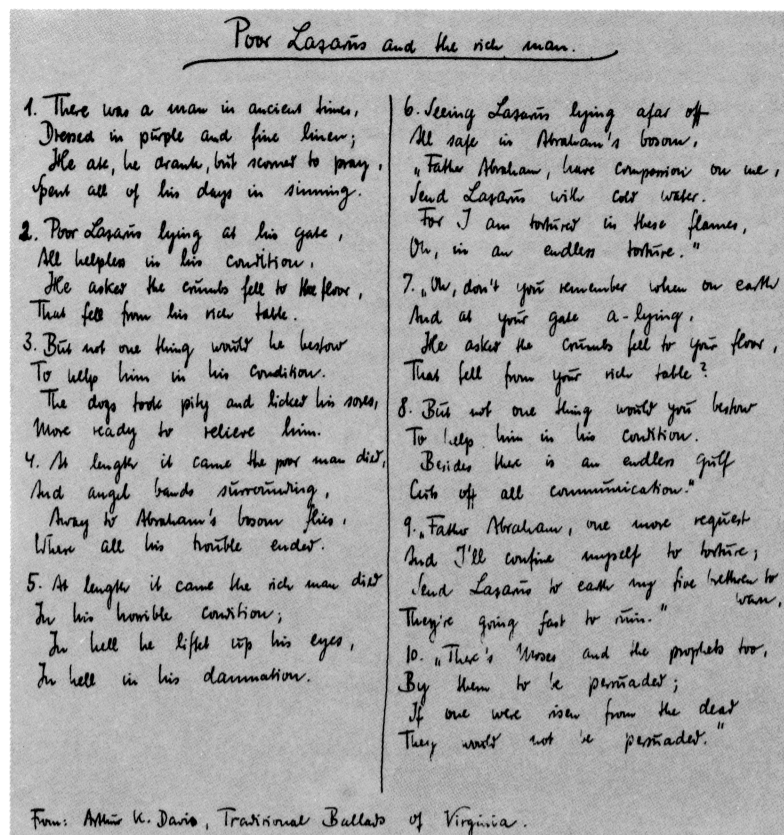 Poor Lazarus and the rich man.
1. There was a man in ancient times,
Dressed in purple and fine linen;
He ate, he drank, but scorned to pray,
Spent all of his days in sinning.
2. Poor Lazarus lying at his gate,
All helpless in his condition,
He asked the crumbs fell to the floor,
That fell from his rich table.
3. But not one thing would he bestow
To help him in his condition.
The dogs took pity and licked his sores,
More ready to relieve him.
4. At length it came the poor man died,
And angel bands surrounding,
Away to Abraham's bosom flies,
Where all his trouble ended.
5. At length it came the rich man died
In his horrible condition;
In hell he lifted up his eyes,
In hell in his damnation.
6. Seeing Lazarus lying afar off
All safe in Abraham's bosom,
„Father Abraham, have compassion on me,
Send Lazarus with cold water.
For I am tortured in these flames,
Oh, in an endless torture."
7. „Oh, don't you remember when on earth
And at your gate a-lying,
He asked the crumbs fell to your floor,
That fell from your rich table?
8. But not one thing would you bestow
To help him in his condition.
Besides there is an endless gulf
Cuts off all communication."
9. „Father Abraham, one more request
And I'll confine myself to torture;
Send Lazarus to earth my five brethren to
warn,
They're going fast to ruin."
10. „There's Moses and the prophets too,
By them to be persuaded;
If one were risen from the dead
They would not be persuaded."
From: Arthur K. Davis, Traditional Ballads of Virginia.